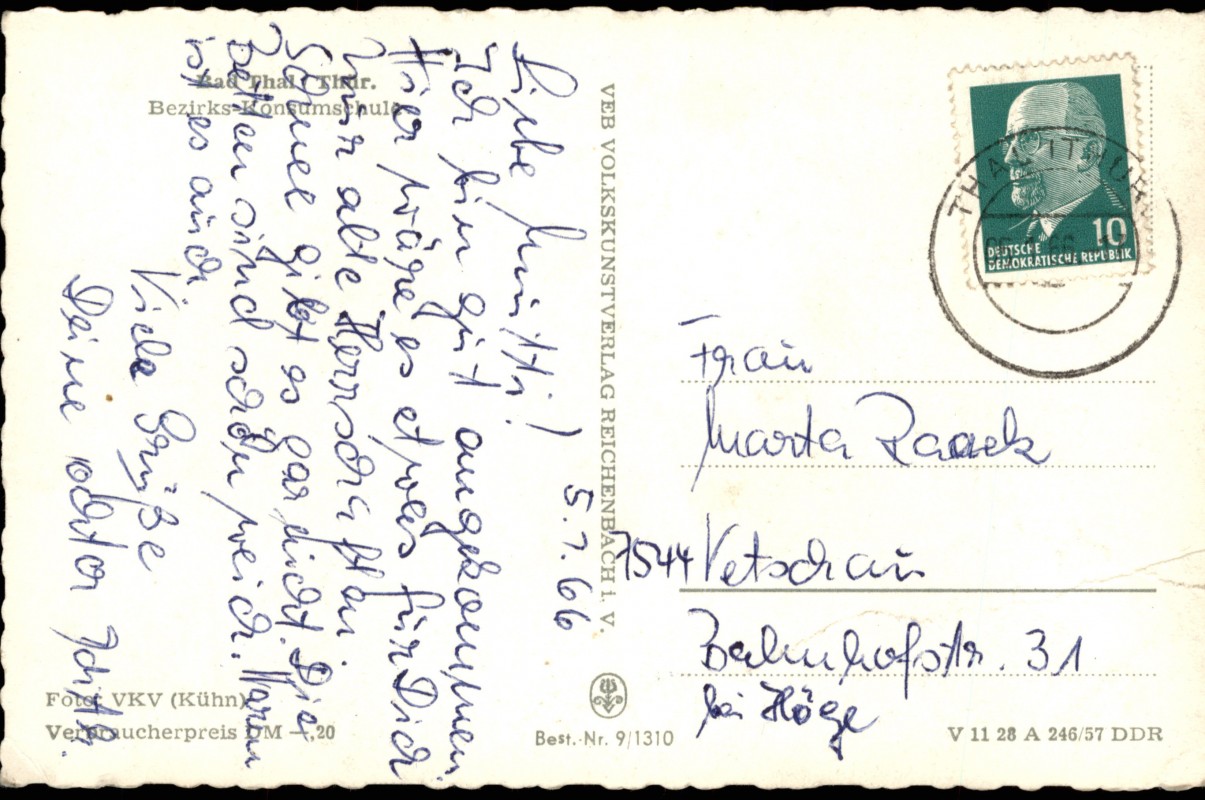 Bad Thal / Thür.
Bezirks-Konsumschule
5.7.66
Liebe Mutti!
Ich bin gut angekommen.
Hier wäre es etwas für Dich
nur alte Herrschaften
Schnee gibt es gar nicht. Die
Betten sind schön weich. Warm
ist es auch
Viele Grüße
Deine
Foto: VKV (Kühn)
Verbraucherpreis DM —,20
VEB VOLKSKUNSTVERLAG REICHENBACH i. V.
Best.-Nr. 9/1310
THAL (THÜR
66
10
DEUTSCHE
DEMOKRATISCHE REPUBLIK
Frau
Marta Raack
7544 Vetschau
Bahnhofstr. 31
bei Höge
V 11 28 A 246/57 DDR